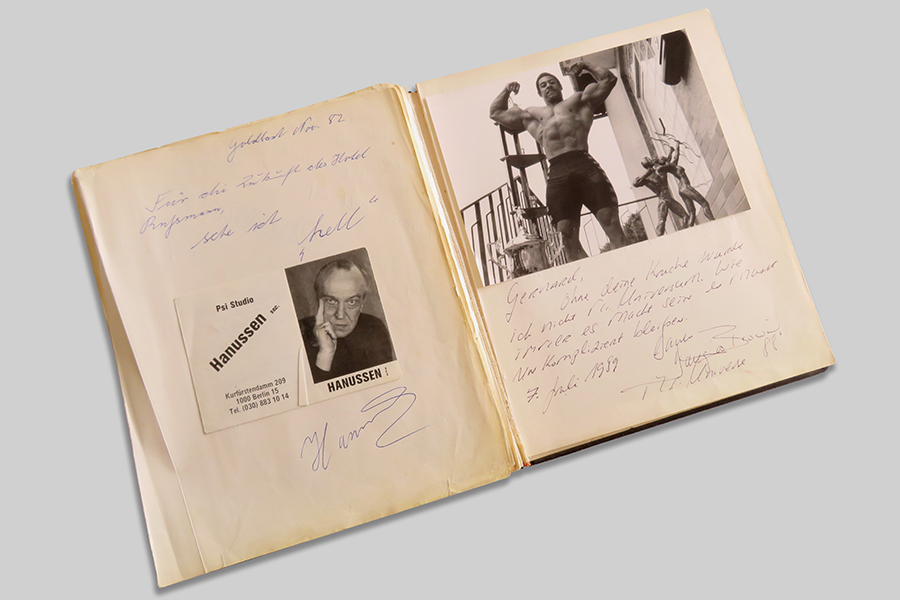 Goldlast Nov. 82
Für die Zukunft des Hotel
Rußmann,
sehe ich
"hell"
Psi Studio
Hanussen
Kurfürstendamm 209
1000 Berlin 15
Tel. (030) 883 10 14
HANUSSEN
Gerhard,
ohne deine Küche wurde
ich nicht Mr. Universum. Wie
immer es macht sein es immer
Un Kompliziert bleiben.
7. Juli 1989
Mr. Universe 88.